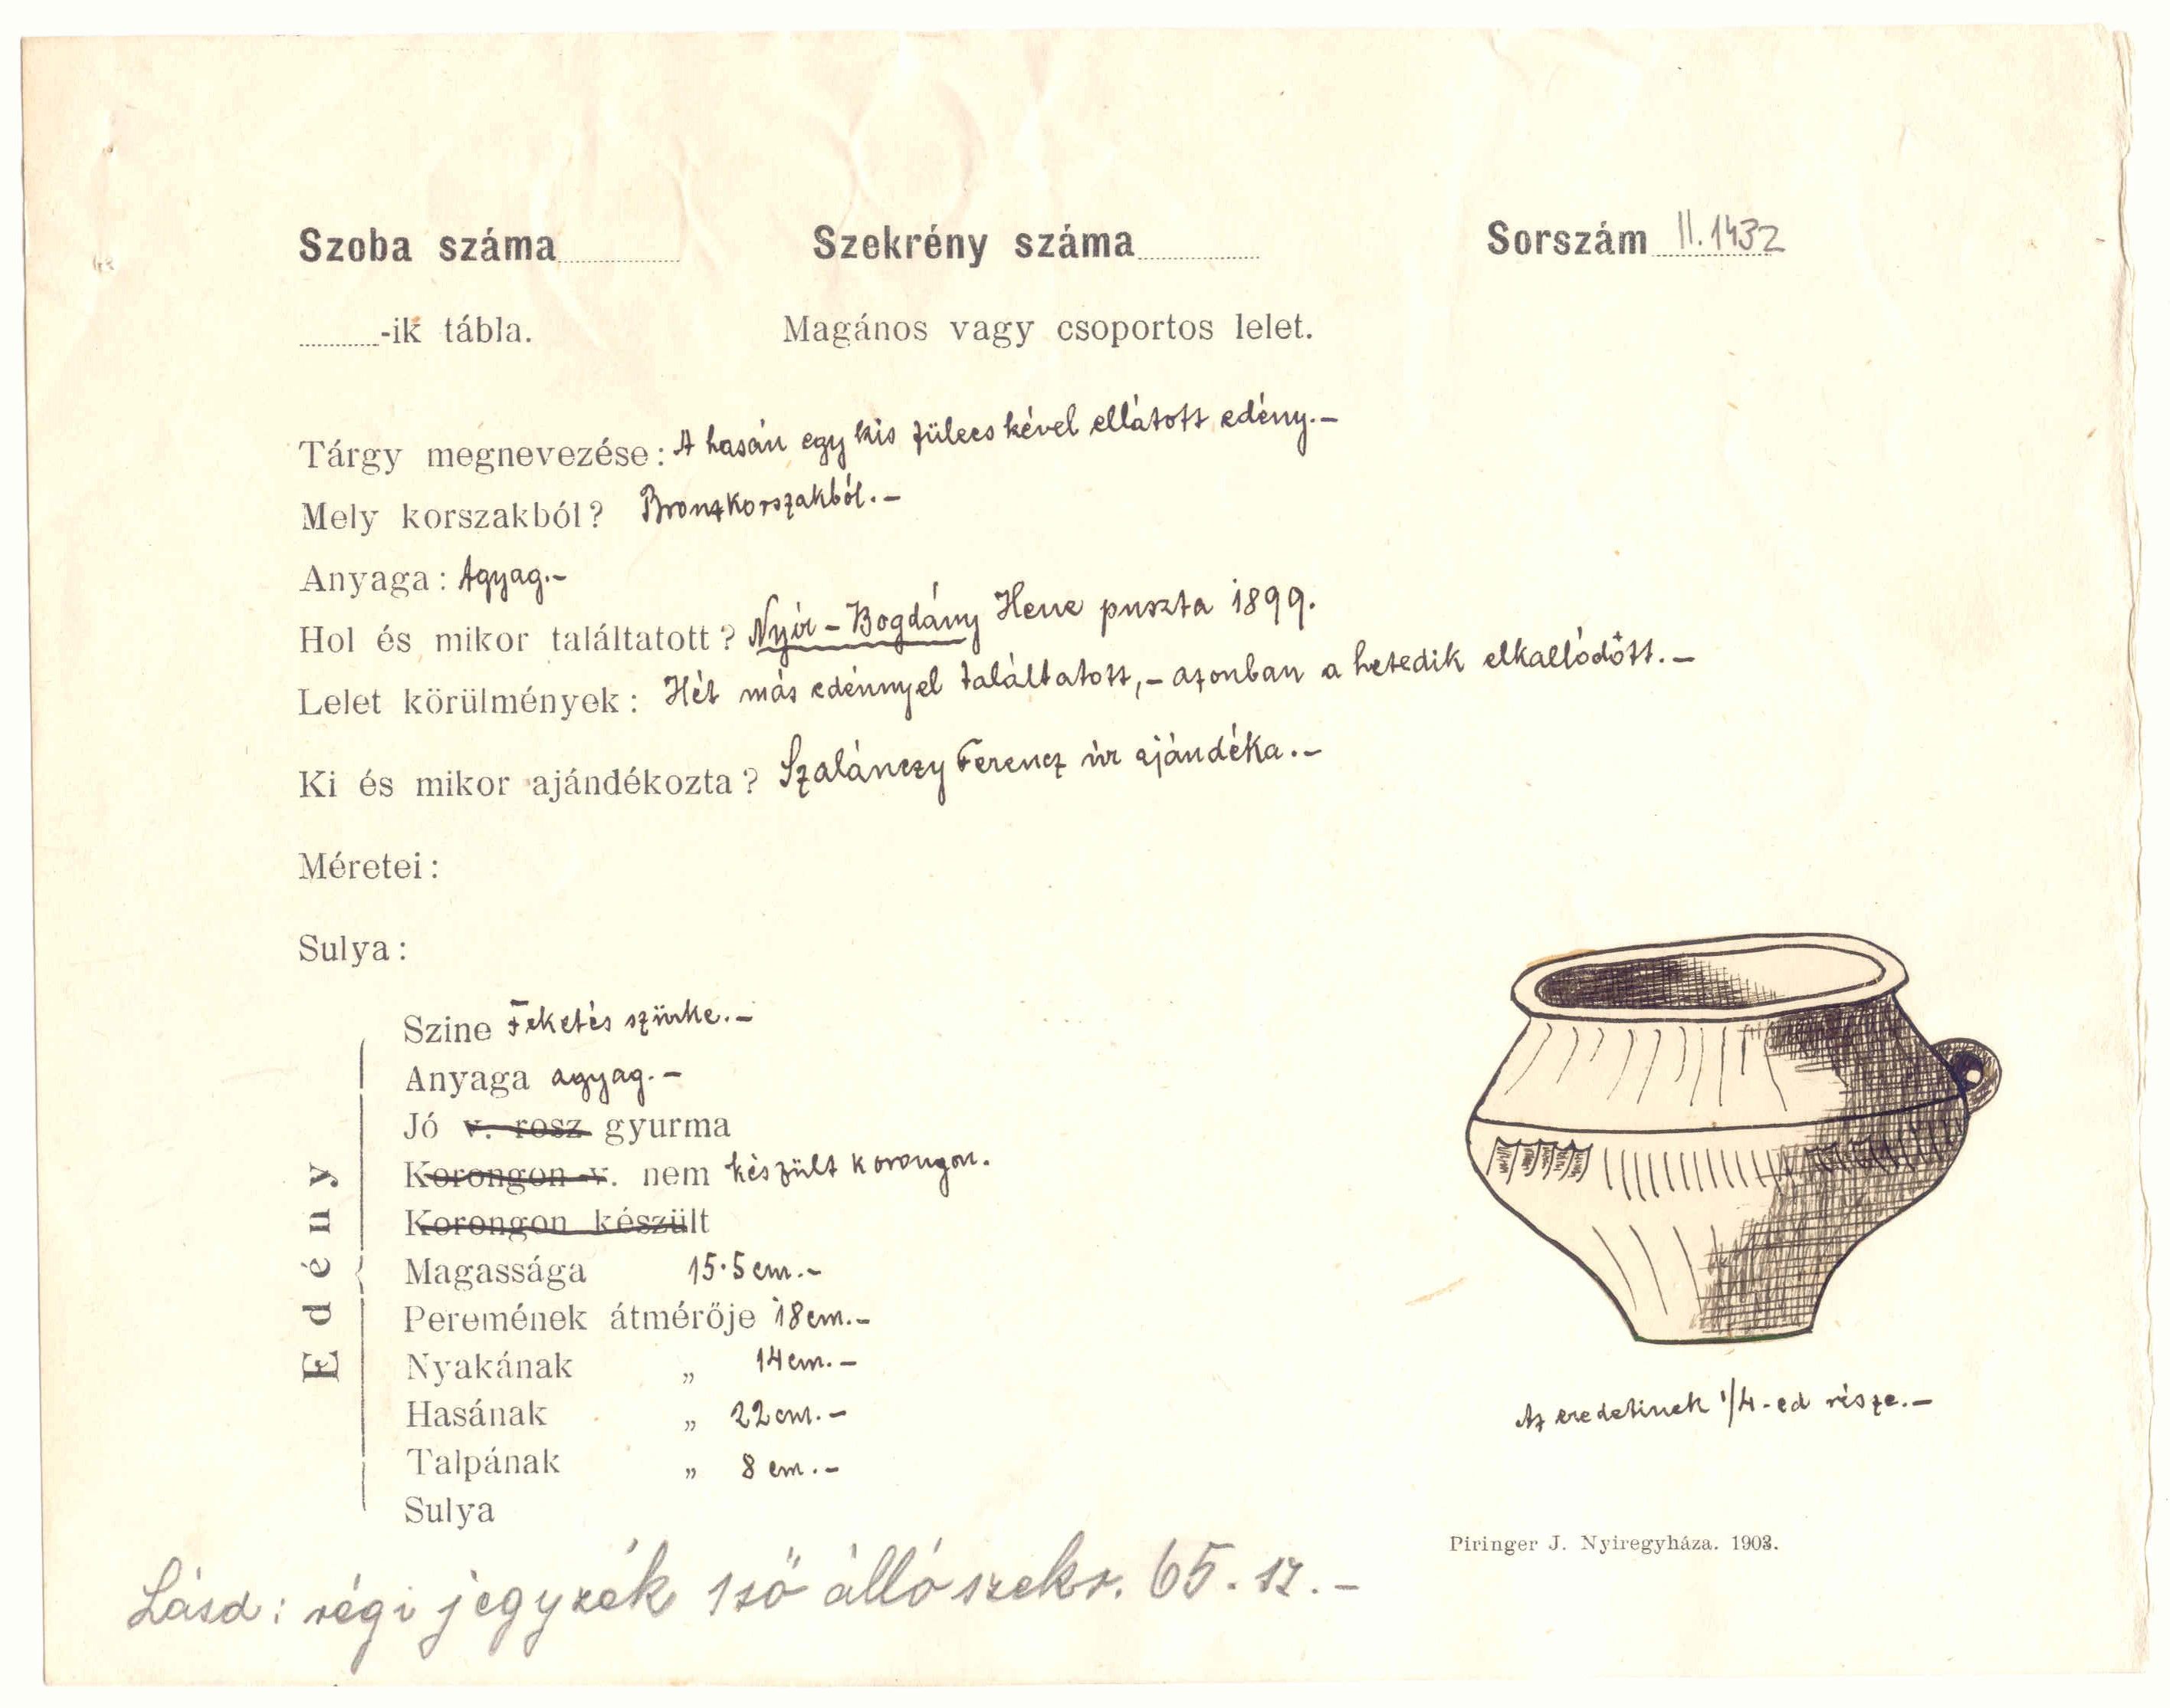 Szoba száma Szekrény száma Sorszám II.1432
-ik tábla. Magános vagy csoportos lelet.
Tárgy megnevezése: A hasán egy kis fülecskével ellátott edény.-
Mely korszakból? Bronzkorszakból.-
Anyaga: Agyag.-
Hol és mikor találtatott? Nyír-Bogdány Hene puszta 1899.
Lelet körülmények: Hét más edénnyel találtatott,- azonban a hetedik elkallódott.-
Ki és mikor ajándékozta? Szalánczy Ferencz úr ajándéka.-
Méretei:
Sulya:
Edény
Szine Feketés szürke.-
Anyaga agyag.-
Jó v. rosz gyurma
Korongon v. nem készült korongon.
Korongon készült
Magassága 15·5 cm.-
Peremének átmérője 18 cm.-
Nyakának „ 14 cm.-
Hasának „ 22 cm.-
Talpának „ 8 cm.-
Sulya
Az eredetinek 1/4-ed része.-
Piringer J. Nyiregyháza. 1903.
Lásd: régi jegyzék 1ső álló szekr. 65. sz.-